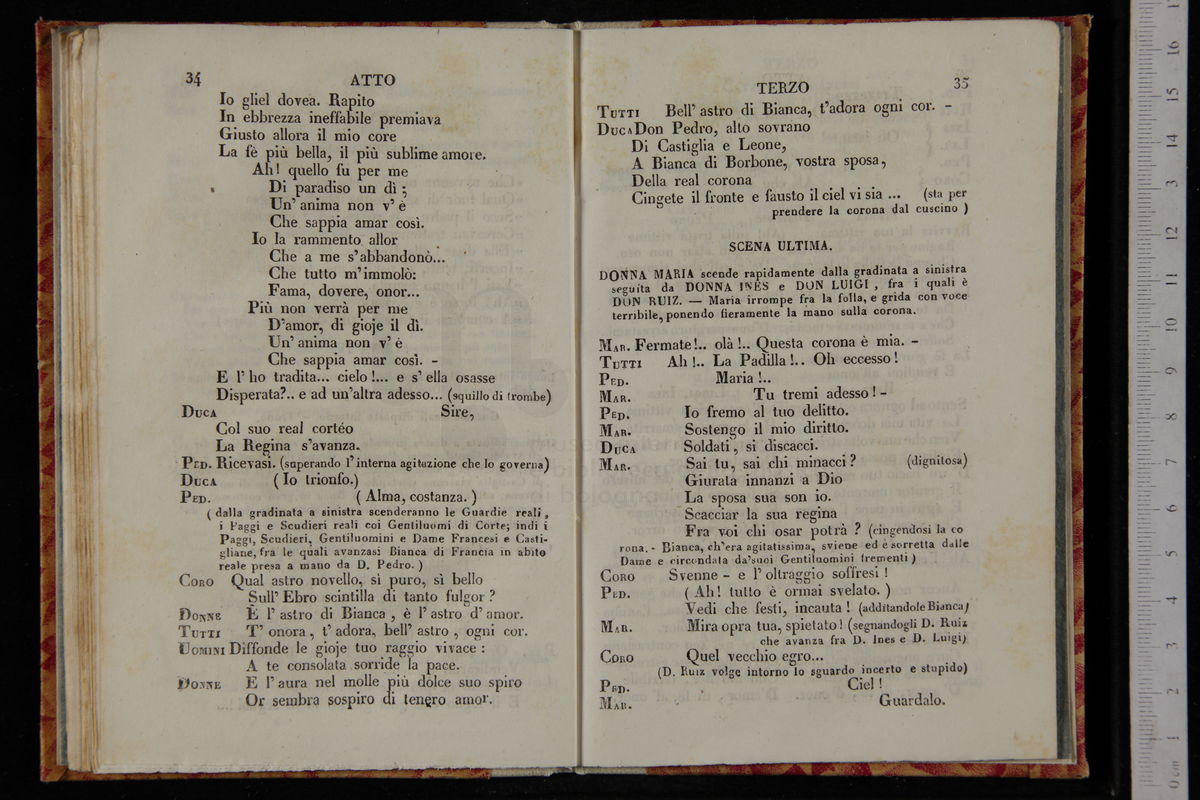 34 ATTO
Io gliel dovea. Rapito
In ebbrezza ineffabile premiava
Giusto allora il mio core
La fè più bella, il più sublime amore.
Ah! quello fu per me
Di paradiso un dì ;
Un' anima non v' è
Che sappia amar così.
Io la rammento allor
Che a me s'abbandonò...
Che tutto m'immolò:
Fama, dovere, onor...
Più non verrà per me
D'amor, di gioje il dì.
Un' anima non v' è
Che sappia amar così. -
E l' ho tradita... cielo!... e s' ella osasse
Disperata?.. e ad un'altra adesso... (squillo di trombe)
DUCA Sire,
Col suo real cortéo
La Regina s'avanza.
PED. Ricevasi. (superando l' interna agitazione che lo governa)
DUCA ( Io trionfo.)
PED. ( Alma, costanza. )
( dalla gradinata a sinistra scenderanno le Guardie reali,
i Paggi e Scudieri reali coi Gentiluomi di Corte; indi i
Paggi, Scudieri, Gentiluomini e Dame Francesi e Casti-
gliane, fra le quali avanzasi Bianca di Francia in abito
reale presa a mano da D. Pedro. )
CORO Qual astro novello, sì puro, sì bello
Sull' Ebro scintilla di tanto fulgor ?
DONNE È l' astro di Bianca , è l' astro d' amor.
TUTTI T' onora , t' adora, bell' astro , ogni cor.
UOMINI Diffonde le gioje tuo raggio vivace :
A te consolata sorride la pace.
DONNE E l' aura nel molle più dolce suo spiro
Or sembra sospiro di tenero amor.
TERZO 35
TUTTI Bell' astro di Bianca, t'adora ogni cor. -
DUCA Don Pedro, alto sovrano
Di Castiglia e Leone,
A Bianca di Borbone, vostra sposa,
Della real corona
Cingete il fronte e fausto il ciel vi sia ... (sta per
prendere la corona dal cuscino )
SCENA ULTIMA.
DONNA MARIA scende rapidamente dalla gradinata a sinistra
seguita da DONNA INÈS e DON LUIGI , fra i quali è
DON RUIZ. — Maria irrompe fra la folla, e grida con voce
terribile, ponendo fieramente la mano sulla corona.
MAR. Fermate!.. olà!.. Questa corona è mia. -
TUTTI Ah!.. La Padilla!.. Oh eccesso!
PED. Maria!..
MAR. Tu tremi adesso! -
PED. Io fremo al tuo delitto.
MAR. Sostengo il mio diritto.
DUCA Soldati, si discacci.
MAR. Sai tu, sai chi minacci? (dignitosa)
Giurata innanzi a Dio
La sposa sua son io.
Scacciar la sua regina
Fra voi chi osar potrà ? (cingendosi la co
rona. - Bianca, ch'era agitatissima, sviene ed è sorretta dalle
Dame e circondata da'suoi Gentiluomini frementi )
CORO Svenne - e l' oltraggio soffresi !
PED. ( Ah! tutto è ormai svelato. )
Vedi che festi, incauta ! (additandole Bianca)
MAR. Mira opra tua, spietato! (segnandogli D. Ruiz
che avanza fra D. Ines e D. Luigi)
CORO Quel vecchio egro...
(D. Ruiz volge intorno lo sguardo incerto e stupido)
PED. Ciel !
MAR. Guardalo.